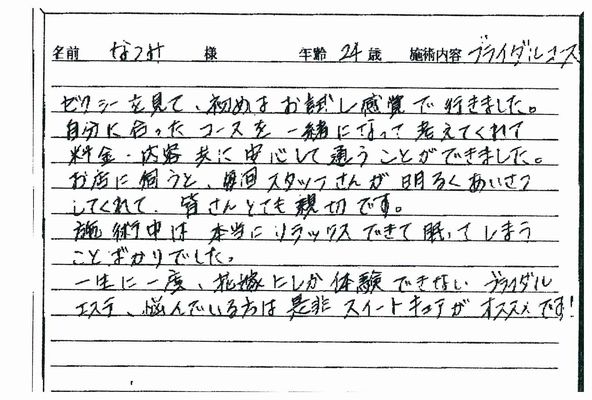 名前 なつみ 様 年齢 24 歳 施術内容 ブライダルコース
ゼクシーを見て、初めはお試し感覚で行きました。
自分に合ったコースを一緒になって考えてくれて
料金・内容共に安心して通うことができました。
お店に伺うと、毎回スタッフさんが明るくあいさつ
してくれて、皆さんとても親切です。
施術中は本当にリラックスできて眠ってしまう
ことばかりでした。
一生に一度、花嫁にしか体験できないブライダル
エステ、悩んでいる方は是非スイートキュアがオススメです!